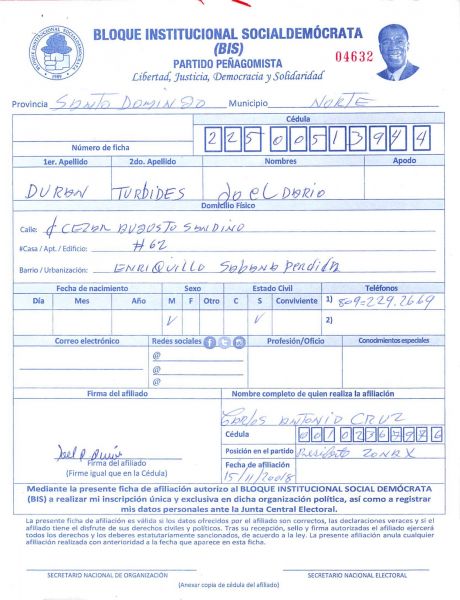 BLOQUE INSTITUCIONAL SOCIALDEMÓCRATA
(BIS)
PARTIDO PEÑAGOMISTA
Libertad, Justicia, Democracia y Solidaridad
04632
Provincia SANTO DOMINGO Municipio NORTE
Número de ficha
Cédula
2 2 5 0 0 5 1 3 9 4 4
1er. Apellido 2do. Apellido Nombres Apodo
DURAN TURBIDES JoeL DARIO
Domicilio Físico
Calle: C CEZAR AUGUSTO SANDINO
#Casa / Apt. / Edificio: #62
Barrio / Urbanización: ENRIQUILLO SABANA PERDIDA
Fecha de nacimiento Sexo Estado Civil Teléfonos
Día Mes Año M F Otro C S Conviviente 1) 809-229-2669
V V 2)
Correo electrónico Redes sociales Profesión/Oficio Conocimientos especiales
@
@
@
Firma del afiliado Nombre completo de quien realiza la afiliación
CARLOS ANTONIO CRUZ
Cédula
Posición en el partido Presidente ZONA X
Firma del afiliado
(Firme igual que en la Cédula)
Fecha de afiliación
15/11/2018
Mediante la presente ficha de afiliación autorizo al BLOQUE INSTITUCIONAL SOCIAL DEMÓCRATA
(BIS) a realizar mi inscripción única y exclusiva en dicha organización política, así como a registrar
mis datos personales ante la Junta Central Electoral.
La presente ficha de afiliación es válida si los datos ofrecidos por el afiliado son correctos, las declaraciones veraces y si el
afiliado tiene el disfrute de sus derechos civiles y políticos. Tras su recepción, sello y firma autorizadas el afiliado ejercerá
todos los derechos y los deberes estatutariamente sancionados, de acuerdo a la ley. La presente afiliación anula cualquier
afiliación realizada con anterioridad a la fecha que aparece en esta ficha.
SECRETARIO NACIONAL DE ORGANIZACIÓN SECRETARIO NACIONAL ELECTORAL
(Anexar copia de cédula del afiliado)